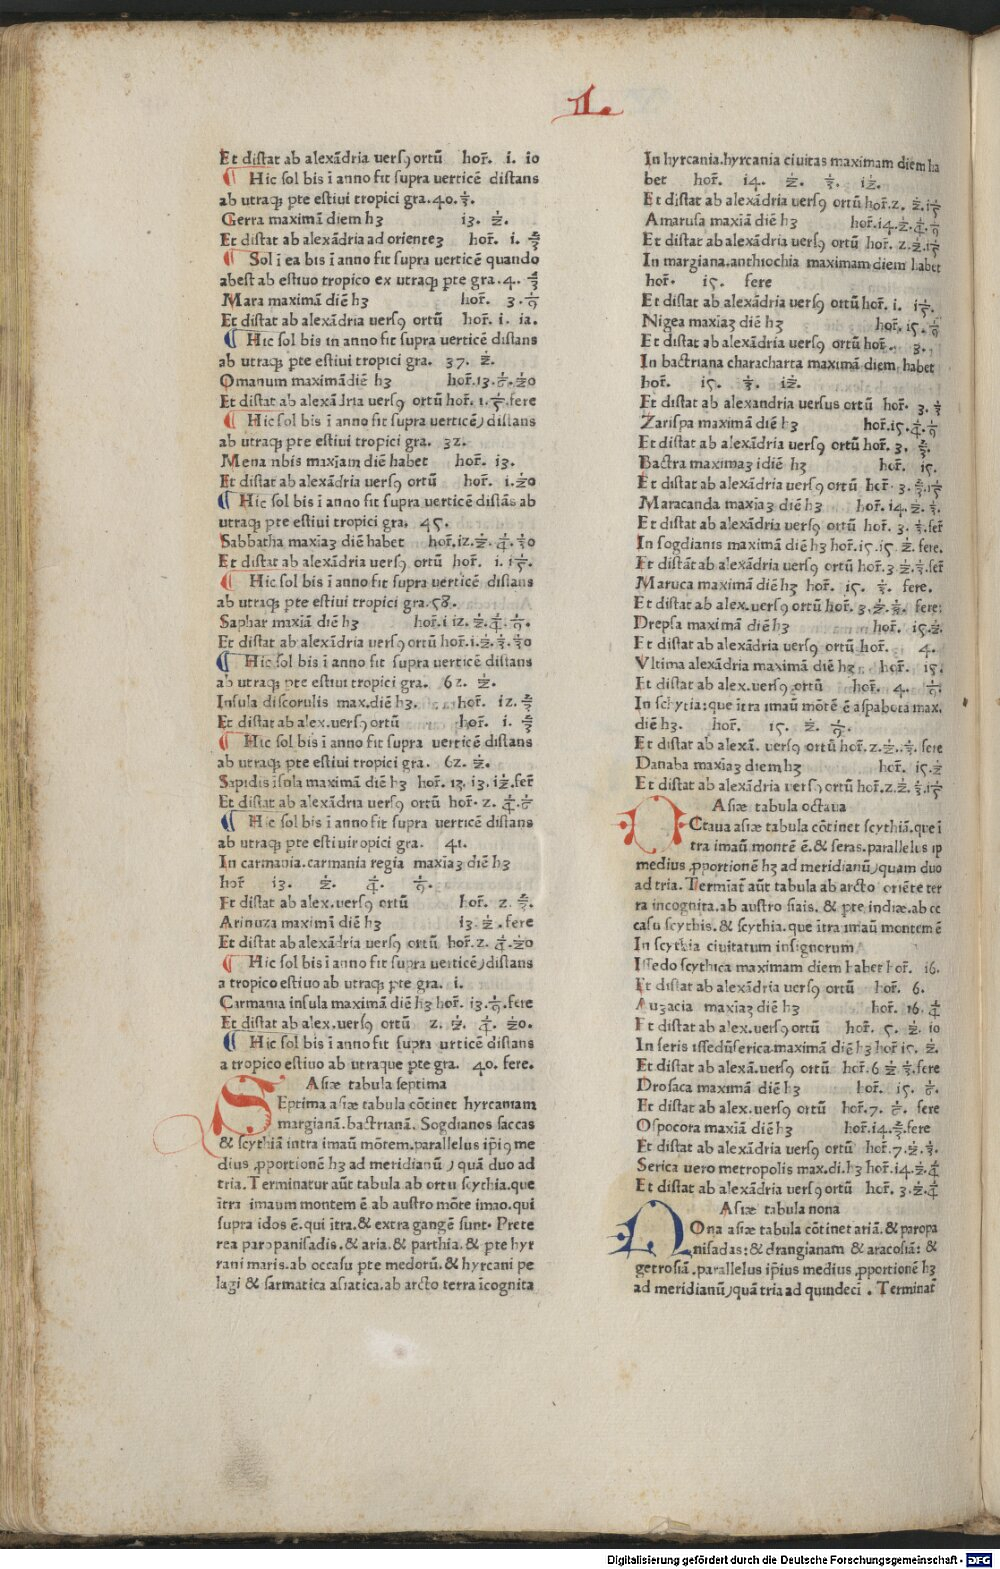 II.
Et distat ab alexãdria uersꝯ ortũ hor̃. i. io
¶ Hic sol bis ĩ anno fit supra verticẽ distans
ab utraqꝫ ꝑte estiui tropici gra.40.⅓.
Gerra maximã diem hꝫ i3. ½.
Et distat ab alexãdria ad orienteꝫ hor̃. i. ⅔
¶ Sol ĩ ea bis ĩ anno fit supra uerticẽ quando
abest ab estiuo tropico ex utraqꝫ ꝑte gra.4. ⅔
Mara maximã diẽ hꝫ hor̃. 3.
Et distat ab alexãdria uersꝯ ortũ hor̃. i. ia.
¶ Hic sol bis in anno fit supra uerticẽ distans
ab utraqꝫ ꝑte estiui tropici gra. 37. ½.
Omanum maximã diẽ hꝫ hor̃.i3.
Et distat ab alexãdria uersꝯ ortũ hor̃. i. fere
¶ Hic sol bis ĩ anno fit supra uerticẽ distans
ab utraqꝫ ꝑte estiui tropici gra. 32.
Mena nbis maxiam diẽ habet hor̃. i3.
Et distat ab alexãdria uersꝯ ortũ hor̃. i.
¶ Hic sol bis ĩ anno fit supra uerticẽ distãs ab
utraqꝫ ꝑte estiui tropici gra. 45.
Sabbatha maxiaꝫ diẽ habet hor̃.i2.½.¼.
Et distat ab alexãdria uersꝯ ortũ hor̃. i.
¶ Hic sol bis ĩ anno fit supra uerticẽ distans
ab utraqꝫ ꝑte estiui tropici gra.58.
Saphar maxiã diẽ hꝫ hor̃.i i2. ½.¼.
Et distat ab alexãdria uersꝯ ortũ hor̃.i.½.⅓.
¶ Hic sol bis ĩ anno fit supra uerticẽ distans
ab utraqꝫ ꝑte estiui tropici gra. 62. ½.
Insula discorulis max.diẽ hꝫ. hor̃. i2. ⅔
Et distat ab alex.uersꝯ ortũ hor̃. i. ⅔
¶ Hic sol bis ĩ anno fit supra uerticẽ distans
ab utraqꝫ ꝑte estiui tropici gra. 62. ½.
Sapidis isola maximã diẽ hꝫ hor̃. i3. i3. fer̃
Et distat ab alexãdria uersꝯ ortũ hor̃. 2. ¼.
¶ Hic sol bis ĩ anno fit supra uerticẽ distans
ab utraqꝫ ꝑte estiui tropici gra. 41.
In carmania.carmania regia maxiaꝫ diẽ hꝫ
hor̃ i3. ½. ¼.
Et distat ab alex.uersꝯ ortũ hor̃. 2. ⅔.
Arinuza maximã diẽ hꝫ i3. ½. fere
Et distat ab alexãdria uersꝯ ortũ hor̃.2. ¼.
¶ Hic sol bis ĩ anno fit supra uerticẽ distans
a tropico estiuo ab utraqꝫ ꝑte gra. i.
Carmania insula maximã diẽ hꝫ hor̃. i3. fere
Et distat ab alex.uersꝯ ortũ 2. ½. ¼.
¶ Hic sol bis ĩ anno fit supra urticẽ distans
a tropico estiuo ab utraque ꝑte gra. 40. fere.
Asiæ tabula septima
SEptima asiæ tabula cõtinet hyrcaniam
margianã.bactrianã. Sogdianos saccas
& scythiã intra imaũ mõtem.parallelus ip̃iꝯ me
dius ꝓportionẽ hꝫ ad meridianũ, quã duo ad
tria. Terminatur aũt tabula ab ortu scythia.que
ĩtra imaum montem ẽ ab austro mõte imao.qui
supra idos ẽ.qui ĩtra.& extra gangẽ sunt. Prete
rea paropanisadis.& aria.& parthia.& ꝑte hyr
rani maris.ab occasu pte medorũ.& hyrcani pe
lagi & sarmatica asiatica.ab arcto terra ĩcognita
In hyrcania.hyrcania ciuitas maximam diem ha
bet hor̃. i4. ½. ⅓.
Et distat ab alexãdria uersꝯ ortũ hor̃.2. ½.
Amarusa maxiã diẽ hꝫ hor̃.i4.½.¼.
Et distat ab alexãdria uersꝯ ortũ hor̃. 2.½.
In margiana.anthiochia maximam diem habet
hor̃. i5. fere
Et distat ab alexãdria uersꝯ ortũ hor̃. i.
Nigea maxiaꝫ diẽ hꝫ hor̃. i5.
Et distat ab alexãdria uersꝯ ortũ hor̃. 3.
In bactriana characharta maximã diem habet
hor̃. i5. ⅓.
Et distat ab alexandria uersus ortũ hor̃. 3. ⅓
Zarispa maximã diẽ hꝫ hor̃.i5.¼.
Et distat ab alexãdria uersꝯ ortũ hor̃. 3. ⅔.
Bactra maximaꝫ idiẽ hꝫ hor̃. i5.
Et distat ab alexãdria uersꝯ ortũ hor̃. 3.
Maracanda maxiaꝫ diẽ hꝫ hor̃. i4. ½. ⅓.
Et distat ab alexãdria uersꝯ ortũ hor̃. 3. ⅓.fer̃
In sogdianis maximã diẽ hꝫ hor̃.i5.i5. ½. fere.
Et distãt ab alexãdria uersꝯ ortũ hor̃.3 ½.⅓.fer̃
Maruca maximã diẽ hꝫ hor̃. i5. ⅓. fere.
Et distat ab alex.uersꝯ ortũ hor̃. 3.½. fere:
Drepsa maximã diẽ hꝫ hor̃. i5.½.
Et distat ab alexãdria uersꝯ ortũ hor̃. 4.
Vltima alexãdria maximã diẽ hꝫ hor̃. i5.
Et distat ab alex.uersꝯ ortũ hor̃. 4.
In schytia:que ĩtra imaũ mõtẽ ẽ aspabota max.
diẽ hꝫ. hor̃. i5. ½.
Et distat ab alexã. uersꝯ ortũ hor̃.2.½.⅓. fere
Danaba maxiaꝫ diem hꝫ hor̃. i5.½
Et distat ab alexãdria uersꝯ ortũ hor̃.2.½. ⅓.
Asiæ tabula octaua
OCtaua asiæ tabula cõtinet scythiã.que ĩ
tra imaũ montẽ ẽ.& seras.parallelus ip
medius ꝓportionẽ hꝫ ad meridianũ, quam duo
ad tria. Termĩat̃ aũt tabula ab arcto oriẽte ter
ra incognita.ab austro siais. & pte indiæ.ab oc
casu scythis.& scythia.que ĩtra imaũ montem ẽ
In scythia ciuitatum insignorum
Issedo scythica maximam diem habet hor̃. i6.
Et distat ab alexãdria uersꝯ ortũ hor̃. 6.
Auzacia maxiaꝫ diẽ hꝫ hor̃. i6. ¼
Et distat ab alex.uersꝯ ortũ hor̃. 5. ½. io
In seris issedũserica.maximã diẽ hꝫ hor̃ i5. ½.
Et distat ab alexã.uersꝯ ortũ hor̃.6 ½ ⅓.fere
Drosaca maximã diẽ hꝫ hor̃. i5.
Et distat ab alex.uersꝯ ortũ hor̃.7. fere
Ospocora maxiã diẽ hꝫ hor̃.i4.⅔.fere
Et distat ab alexãdria uersꝯ ortũ hor̃.7.½.⅓.
Serica uero metropolis max.di.hꝫ hor̃.i4.½.¼
Et distat ab alexãdria uersꝯ ortũ hor̃. 3.½.¼
Asiæ tabula nona
NOna asiæ tabula cõtinet ariã.& paropa
nisadas:& drangianam & aracosiã: &
getrosiã.parallelus ip̃ius medius ꝓportionẽ hꝫ
ad meridianũ, quã tria ad quindecĩ. Terminat̃
Digitalisierung gefördert durch die Deutsche Forschungsgemeinschaft - DFG